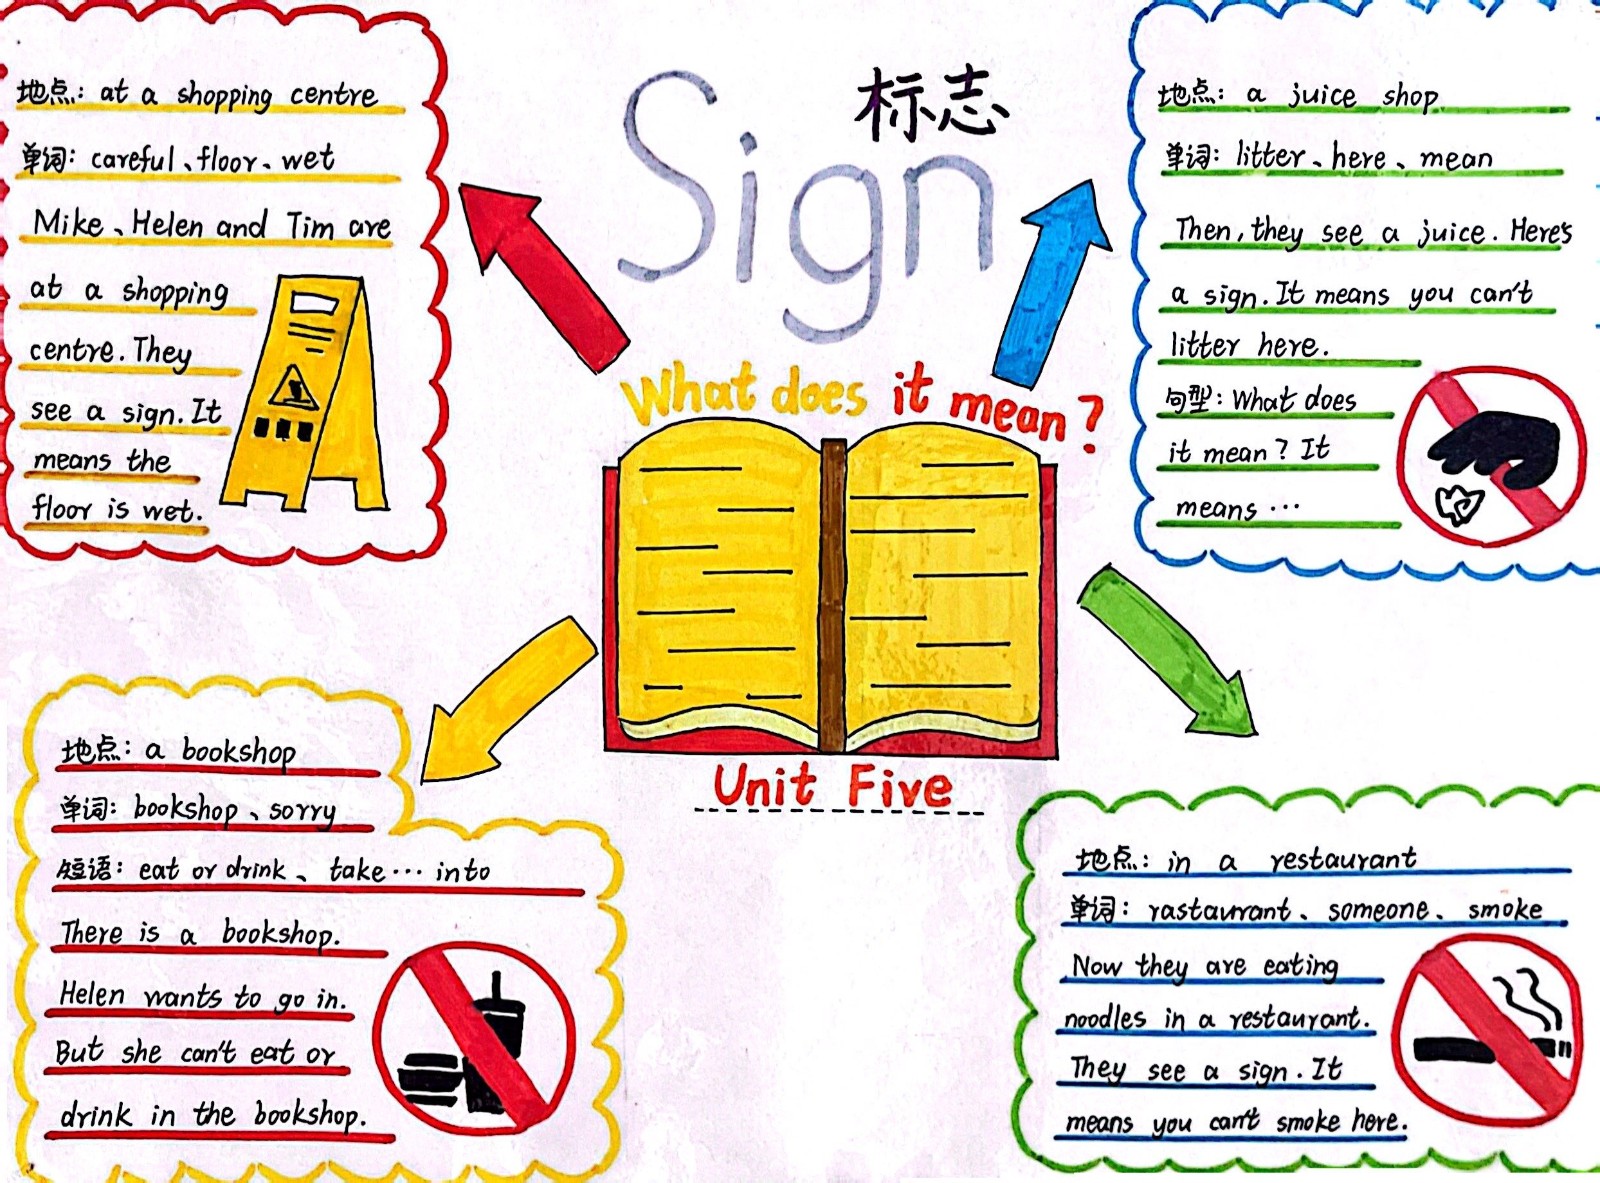 Sign
标志
What does it mean?
Unit Five
地点: at a shopping centre
单词: careful、floor、wet
Mike、Helen and Tim are
at a shopping
centre. They
see a sign. It
means the
floor is wet.
地点: a juice shop
单词: litter、here、mean
Then, they see a juice. Here's
a sign. It means you can't
litter here.
句型: What does
it mean? It
means …
地点: a bookshop
单词: bookshop、sorry
短语: eat or drink、take… into
There is a bookshop.
Helen wants to go in.
But she can't eat or
drink in the bookshop.
地点: in a restaurant
单词: rastaurant、someone、smoke
Now they are eating
noodles in a restaurant.
They see a sign. It
means you can't smoke here.